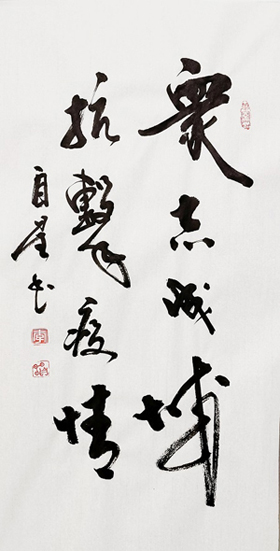 衆志成城
抗擊疫情
自星书